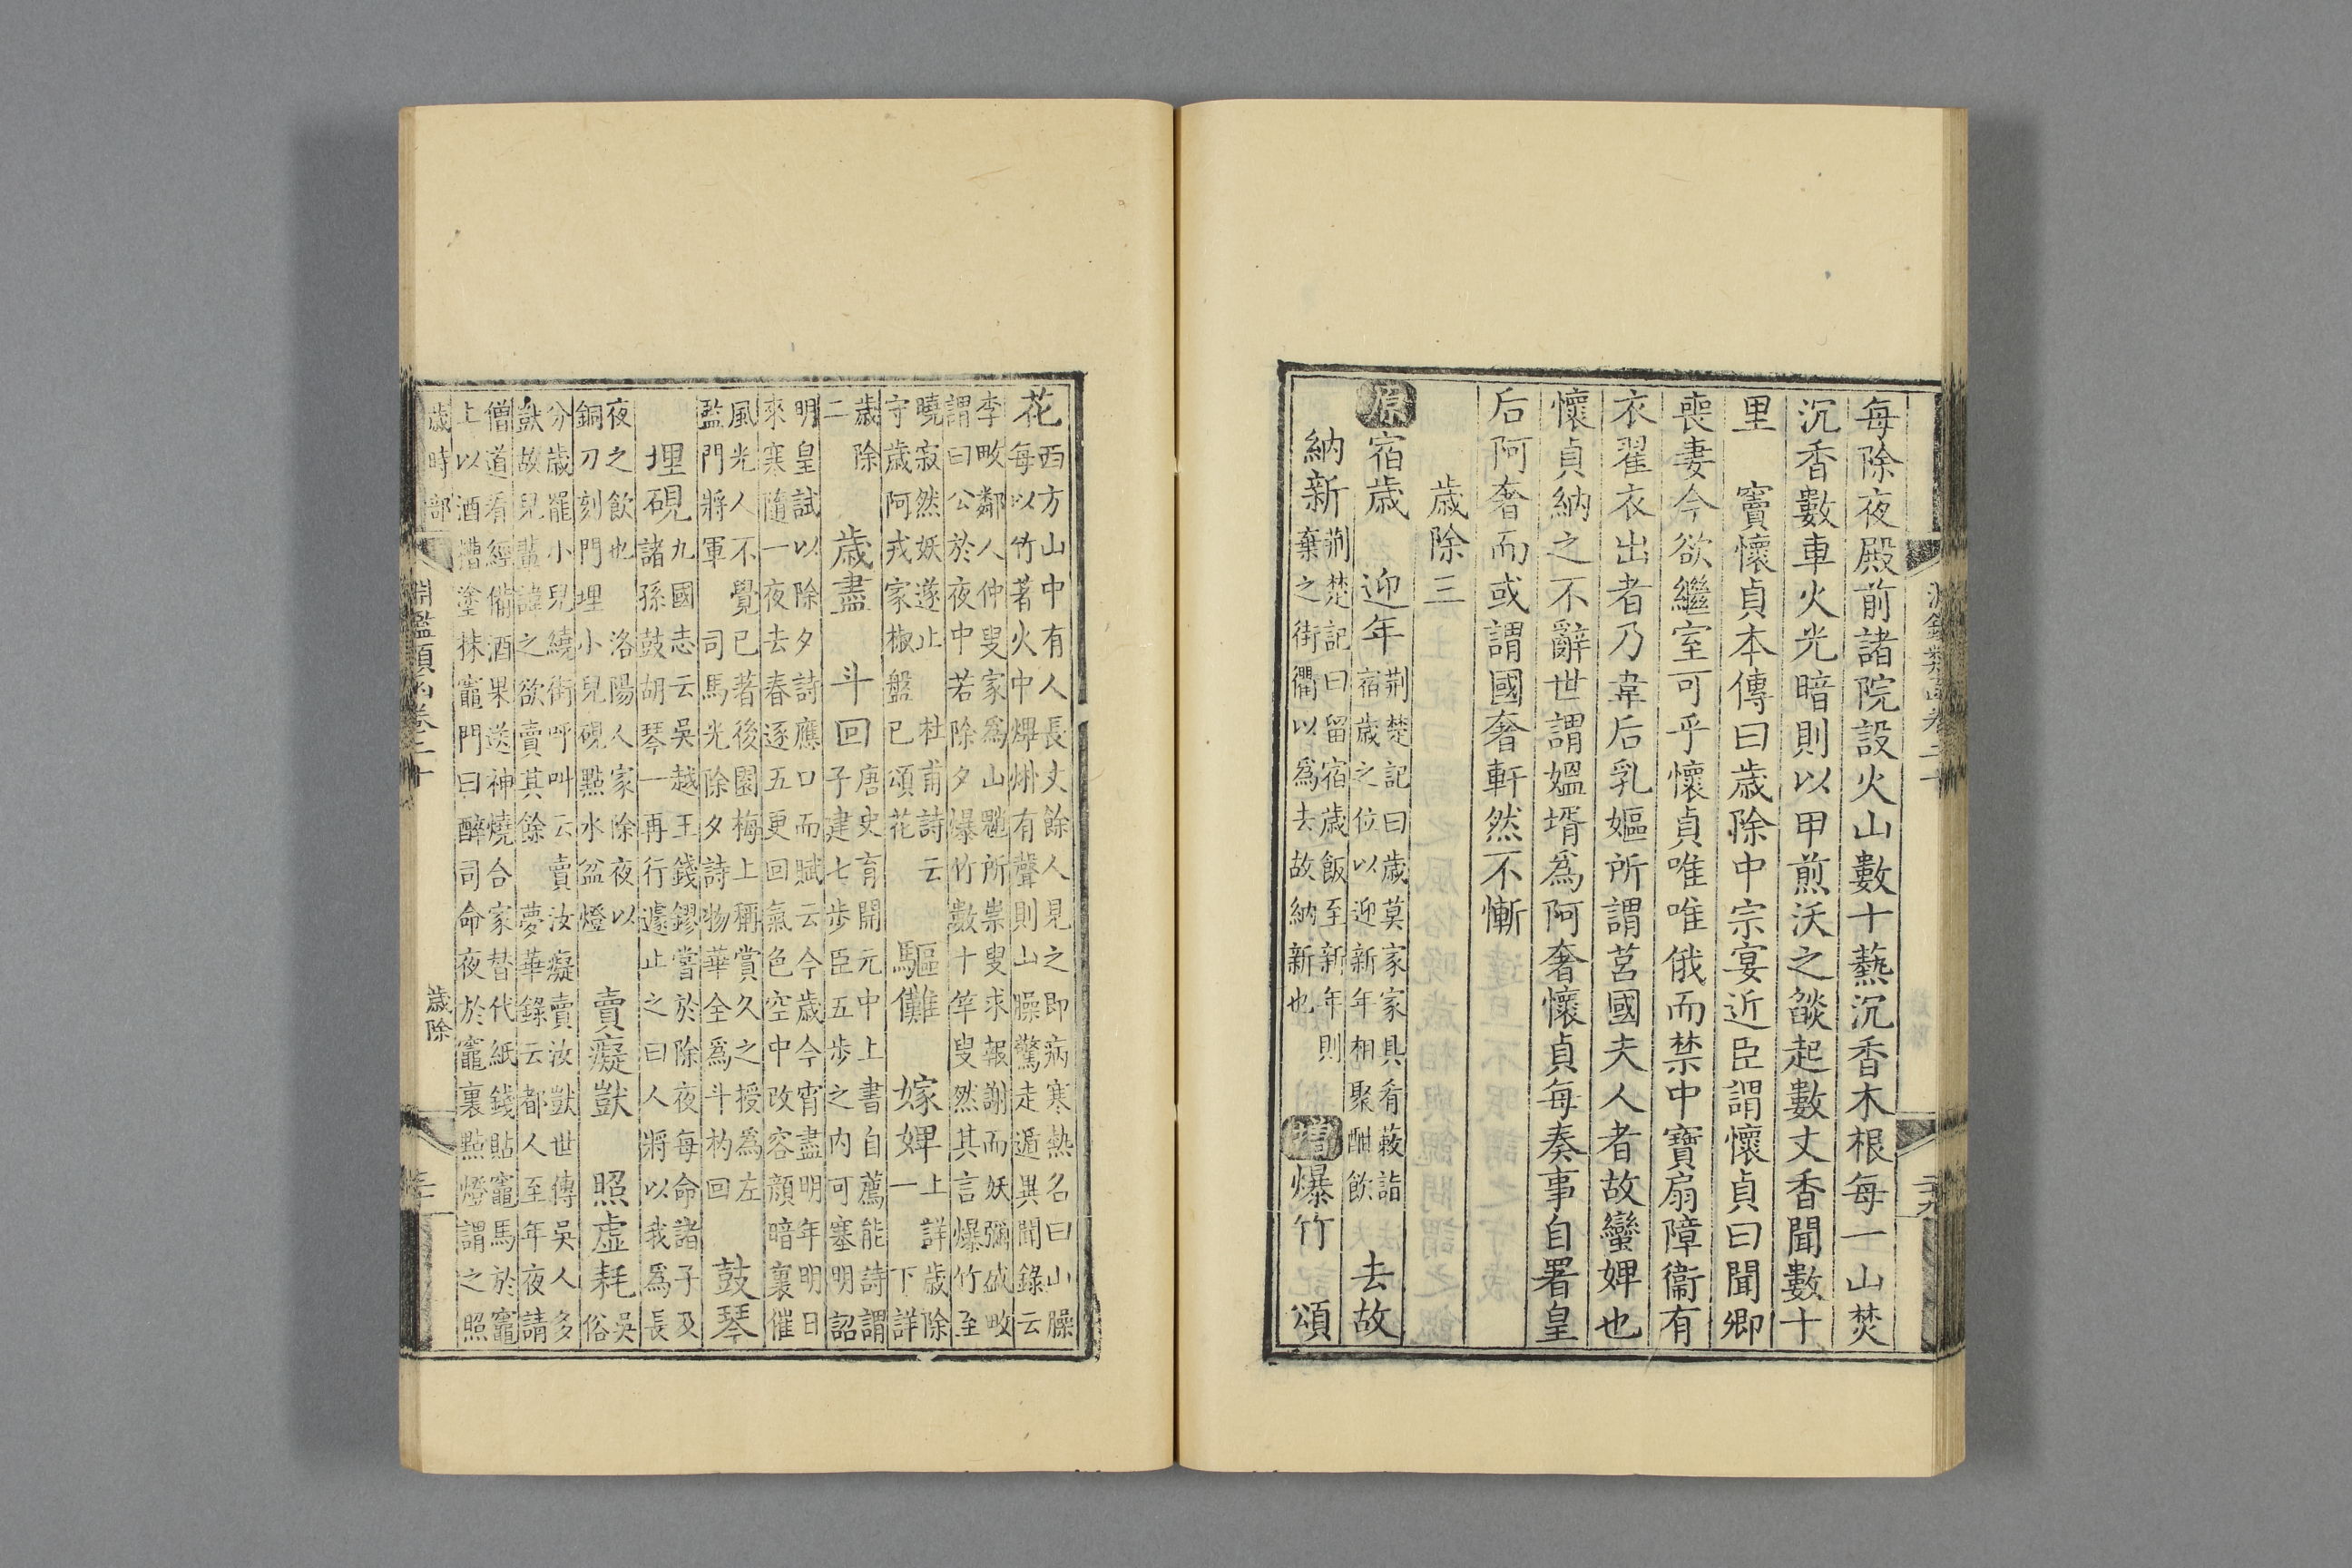 每除夜殿前諸院設火山數十爇沉香木根每一山焚
沉香數車火光暗則以甲煎沃之燄起數丈香聞數十
里　竇懷貞本傳曰歳除中宗宴近臣謂懷貞曰聞卿
喪妻今欲繼室可乎懷貞唯唯俄而禁中寶扇障衞有
衣翟衣出者乃韋后乳嫗所謂莒國夫人者故蠻婢也
懷貞納之不辭世謂媼壻爲阿奢懷貞每奏事自署皇
后阿奢而或謂國奢軒然不慚
歳除三
原宿歳　迎年
荆楚記曰歳莫家家具肴蔌詣
宿歳之位以迎新年相聚酣飲
去故
納新
荆楚記曰留宿歳飯至新年則
棄之街衢以爲去故納新也
增爆竹　頌
花
西方山中有人長丈餘人見之即病寒熱名曰山臊
每以竹著火中熚烞有聲則山臊驚走遁異聞錄云
李畋鄰人仲叟家爲山魈所祟叟求報謝而妖彌盛畋
謂曰公於夜中若除夕爆竹數十竿叟然其言爆竹至
曉寂然妖遂止　杜甫詩云
守歳阿戎家椒盤已頌花
驅儺　嫁婢
上詳歳除
一　下詳
歳除
二
歳盡　斗回
唐史育開元中上書自薦能詩謂
子建七步臣五步之内可塞明詔
明皇試以除夕詩應口而賦云今歳今宵盡明年明日
來寒隨一夜去春逐五更回氣色空中改容顔暗裏催
風光人不覺已著後園梅上稱賞久之授爲左
監門將軍　司馬光除夕詩物華全爲斗杓回
鼓琴
埋硯
九國志云吳越王錢鏐嘗於除夜每命諸子及
諸孫鼓胡琴一再行遽止之曰人將以我爲長
夜之飲也　洛陽人家除夜以
銅刀刻門埋小兒硯點水盆燈
賣癡獃　照虚耗
吳
俗
分歳罷小兒繞街呼叫云賣汝癡賣汝獃世傳吳人多
獃故兒輩諱之欲賣其餘　夢華錄云都人至年夜請
僧道看經備酒果送神燒合家替代紙錢貼竈馬於竈
上以酒糟塗抹竈門曰醉司命夜於竈裏點燈謂之照
歳時部
淵鑑類函卷二十
歳除